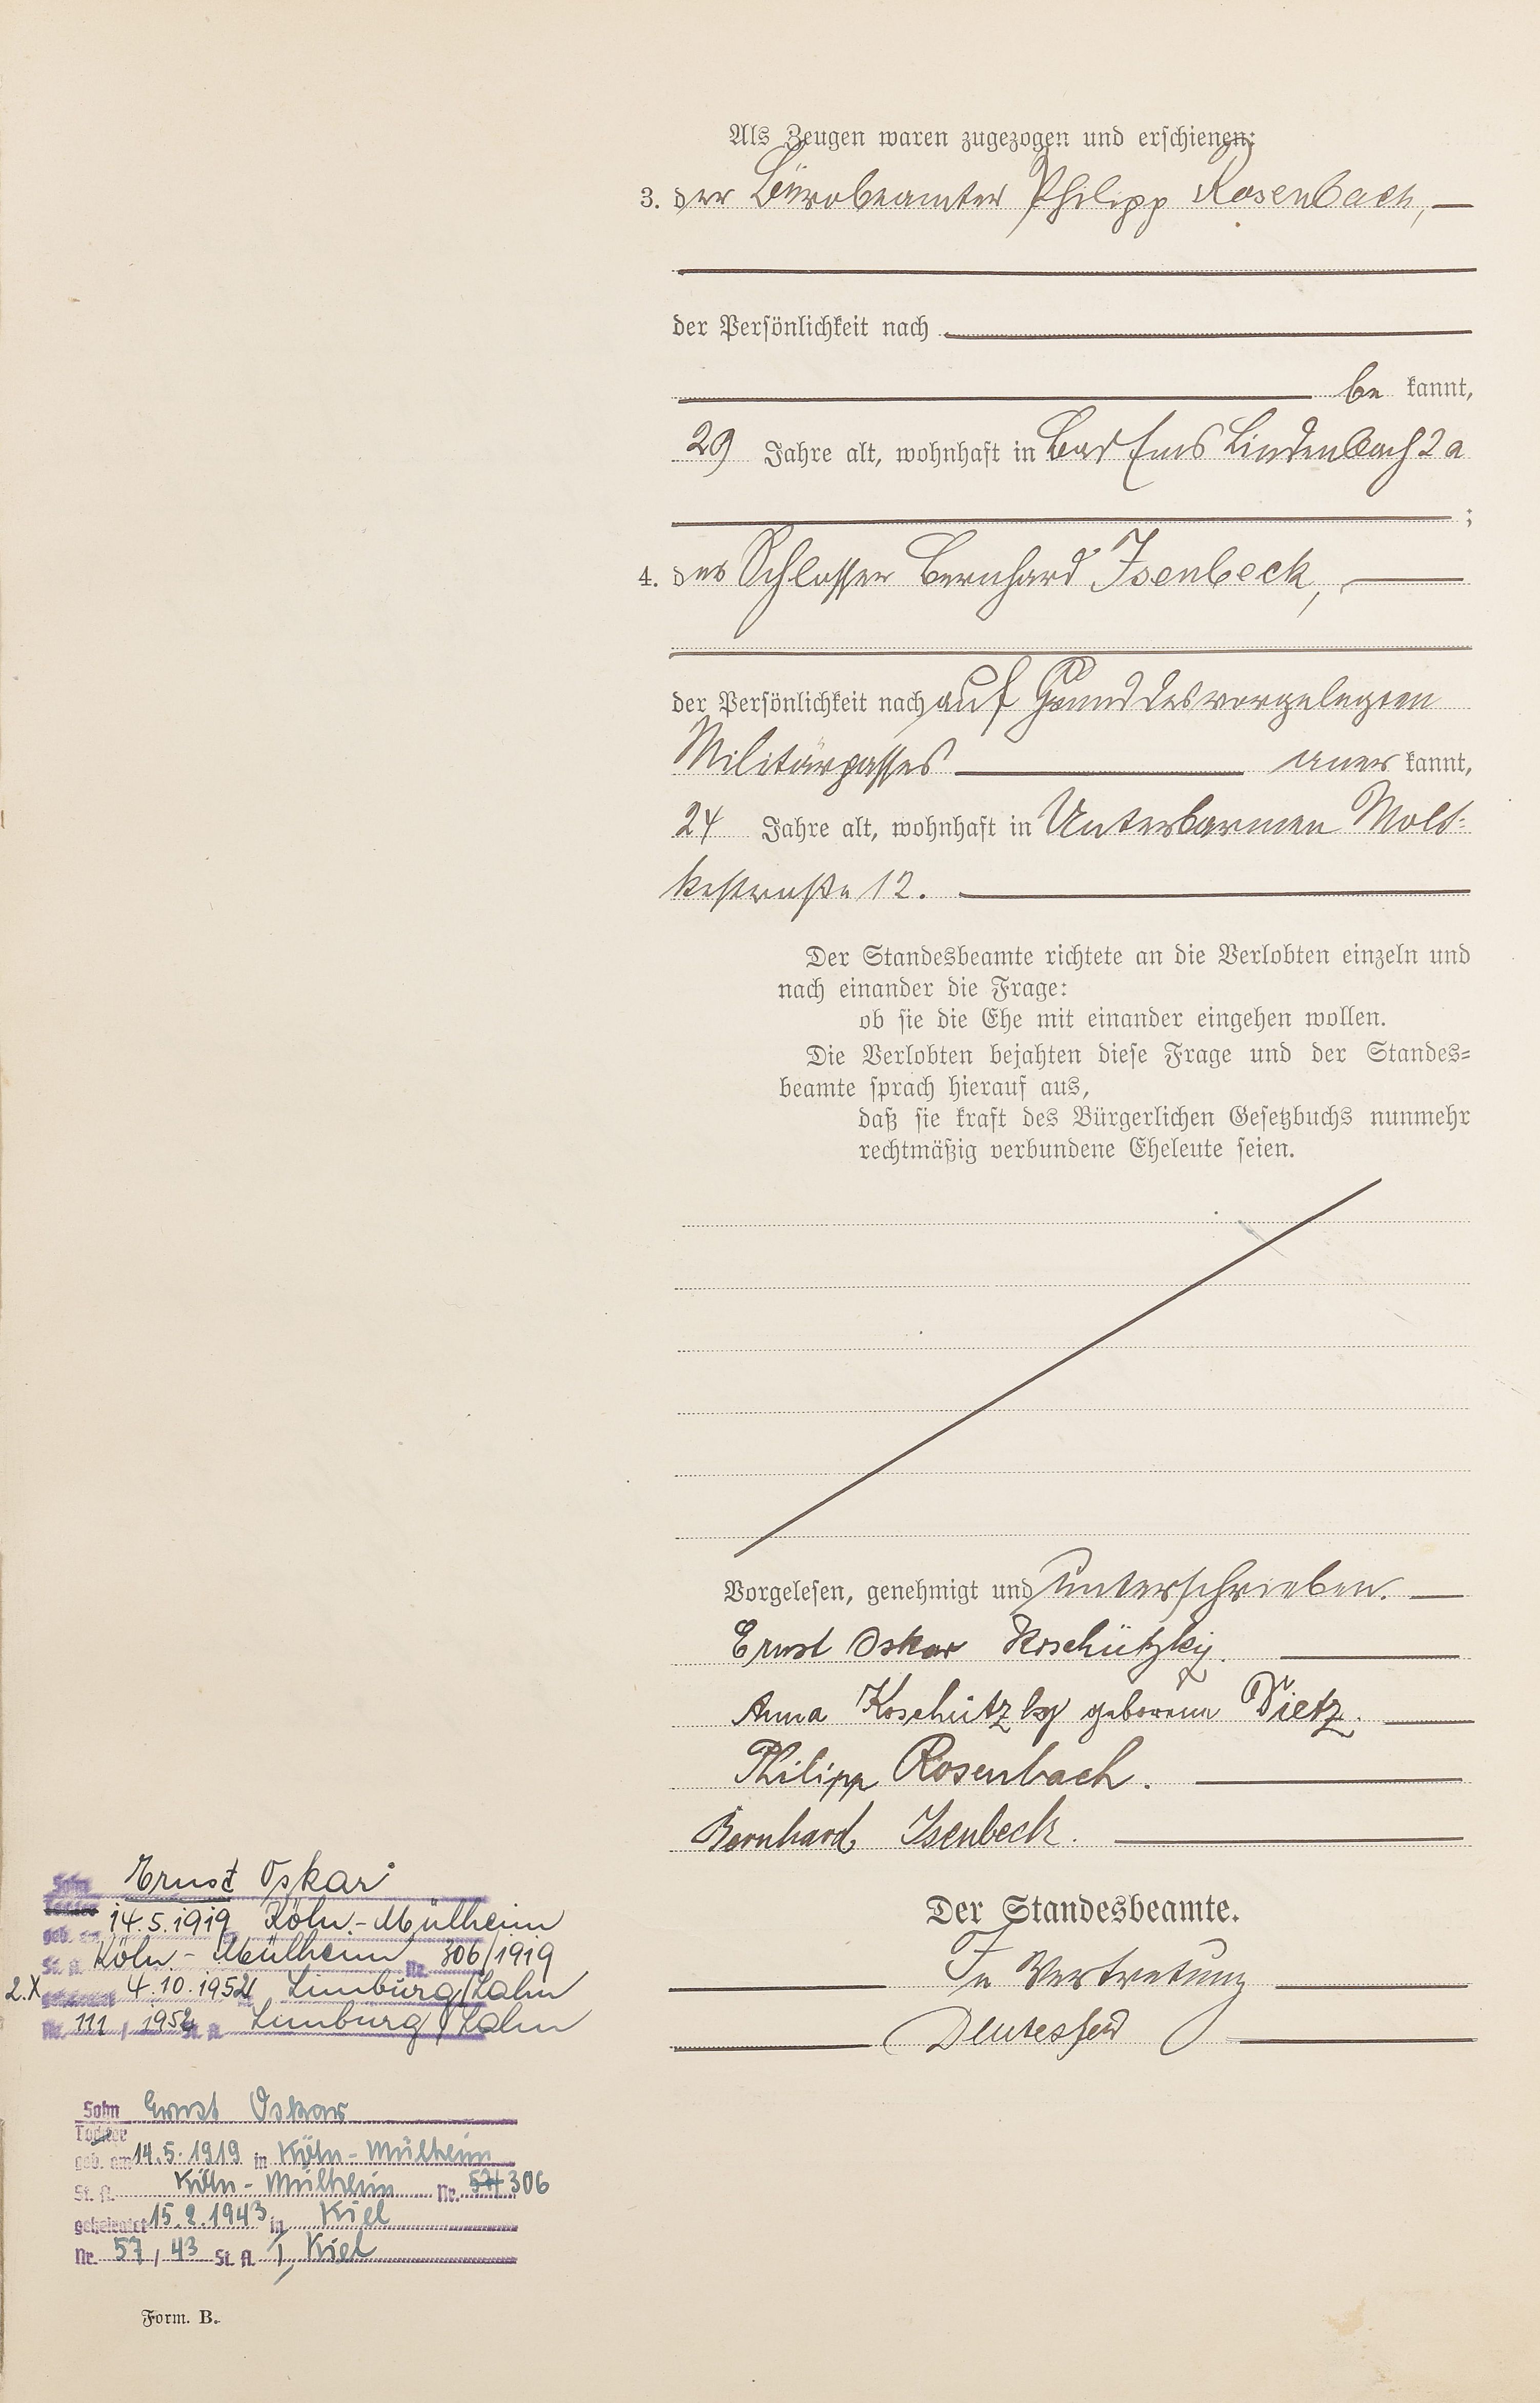 Als Zeugen waren zugezogen und erschienen:
3. der Bürobeamter Philipp Rosenbach,
der Persönlichkeit nach
be kannt,
29 Jahre alt, wohnhaft in Bad Ems Lindenbach 2a
;
4. der Schlosser Bernhard Isenbeck,
der Persönlichkeit nach auf Grund des vorgelegten
Militärpasses aner kannt,
24 Jahre alt, wohnhaft in Unterbarmen Molt-
kestraße 12.
Der Standesbeamte richtete an die Verlobten einzeln und
nach einander die Frage:
ob sie die Ehe mit einander eingehen wollen.
Die Verlobten bejahten diese Frage und der Standes-
beamte sprach hierauf aus,
daß sie kraft des Bürgerlichen Gesetzbuchs nunmehr
rechtmäßig verbundene Eheleute seien.
Vorgelesen, genehmigt und unterschrieben.
Ernst Oskar Koschützky.
Anna Koschützky geborene Dietz.
Philipp Rosenbach.
Bernhard Isenbeck.
Der Standesbeamte.
In Vertretung
Sohn Ernst Oskar
Tochter
geb. am 14.5.1919 Köln-Mülheim
St. A. Köln-Mülheim Nr. 306/1919
2.X geheiratet 4.10.1952 Limburg/Lahn
Nr. 111 / 1952 St. A. Limburg/Lahn
Sohn Ernst Oskar
Tochter
geb. am 14.5.1919 in Köln-Mülheim
St. A. Köln-Mülheim Nr. 574 306
geheiratet 15.2.1943 in Kiel
Nr. 57 / 43 St. A. I, Kiel
Form. B.